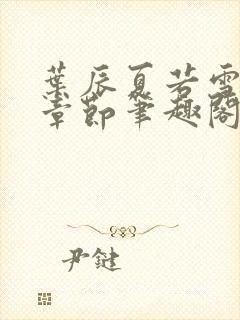 葉辰夏若雪
章節筆趣閣
尹鍵